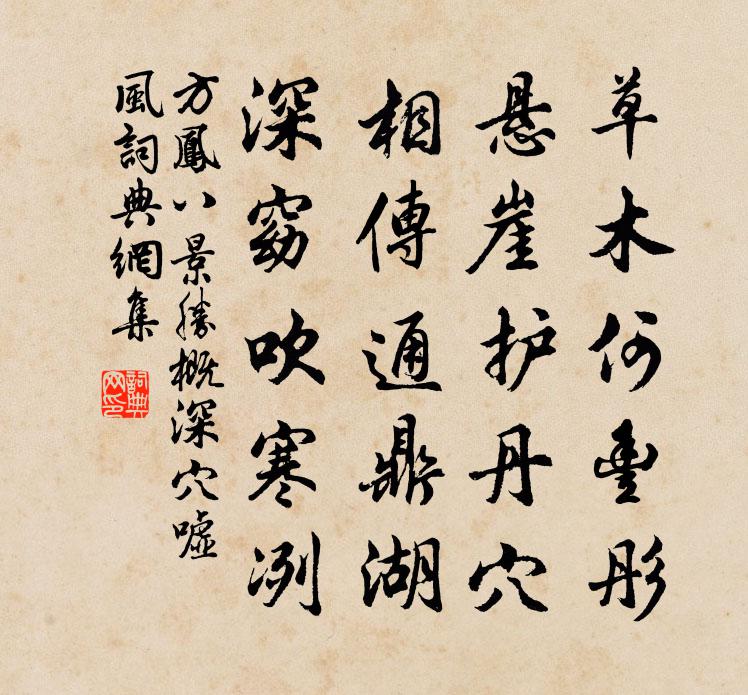 草木何丰彤
悬崖护丹穴
相傳通鼎湖
深窈吹寒冽
方鳳八景勝概深穴嘘
風詞典網集
詞典
网印